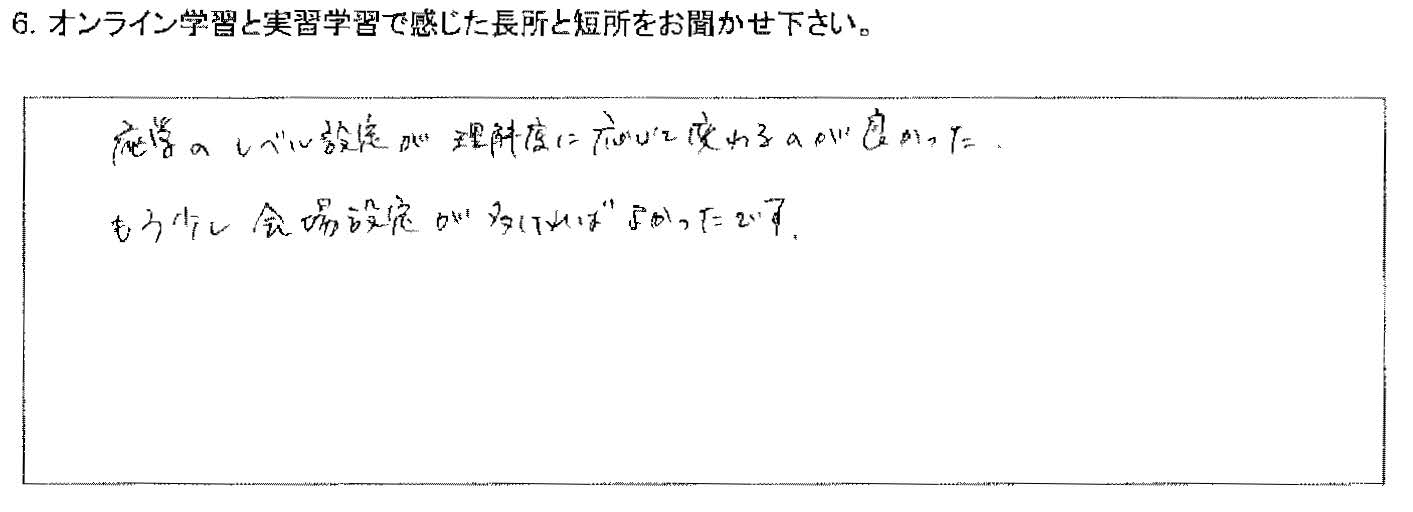 6. オンライン学習と実習学習で感じた長所と短所をお聞かせ下さい。
座学のレベル設定が理解度に応じて変わるのが良かった.
もう少し会場設定が多ければよかったです.